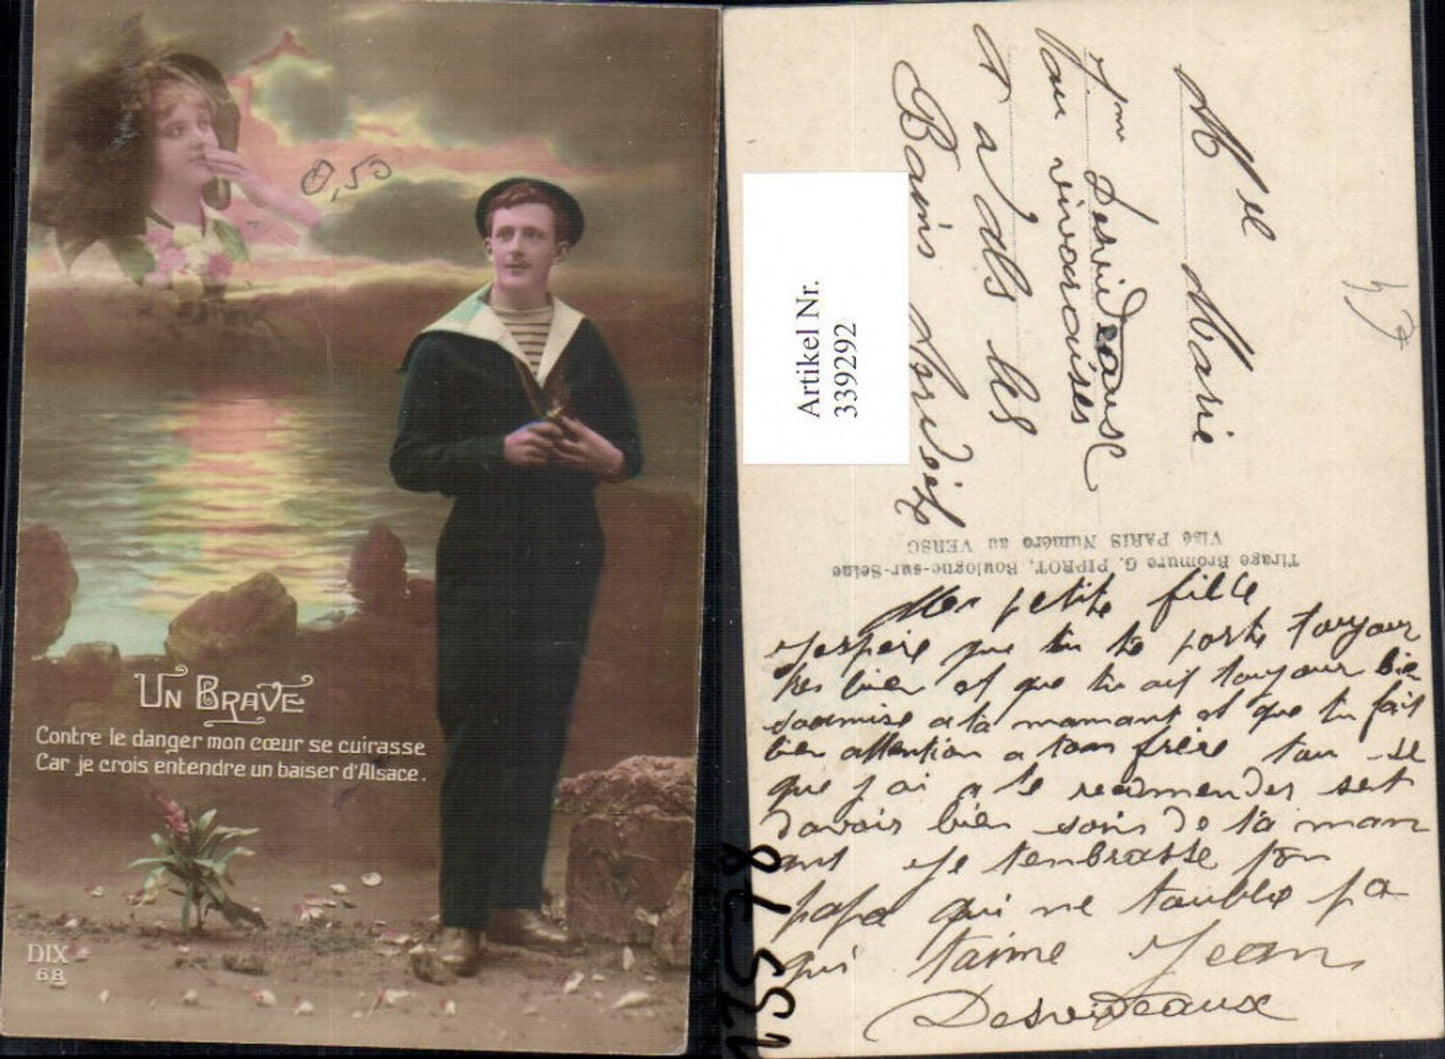 0,55
UN BRAVE
Contre le danger mon cœur se cuirasse
Car je crois entendre un baiser d'Alsace.
DIX
68
Artikel Nr.
339292
Mel Marie
Desvideaux
vivaroises
à Vals les
Bains Ardèch
Tirage Bromure G. PIPROT, Boulogne-sur-Seine
Visé PARIS Numéro au VERSO
Ma petite fille
Jespère que tu te porte toujour
tres bien et que tu ait toujour bie
soumise a ta mamant et que tu fait
bien attention a ton frère tou se
que j ai a te recomender set
davoir bien soris de ta mam
ant Je tembrasse ton
papa qui ne toublie pa
qui taime Jean
Desvideaux
135-78